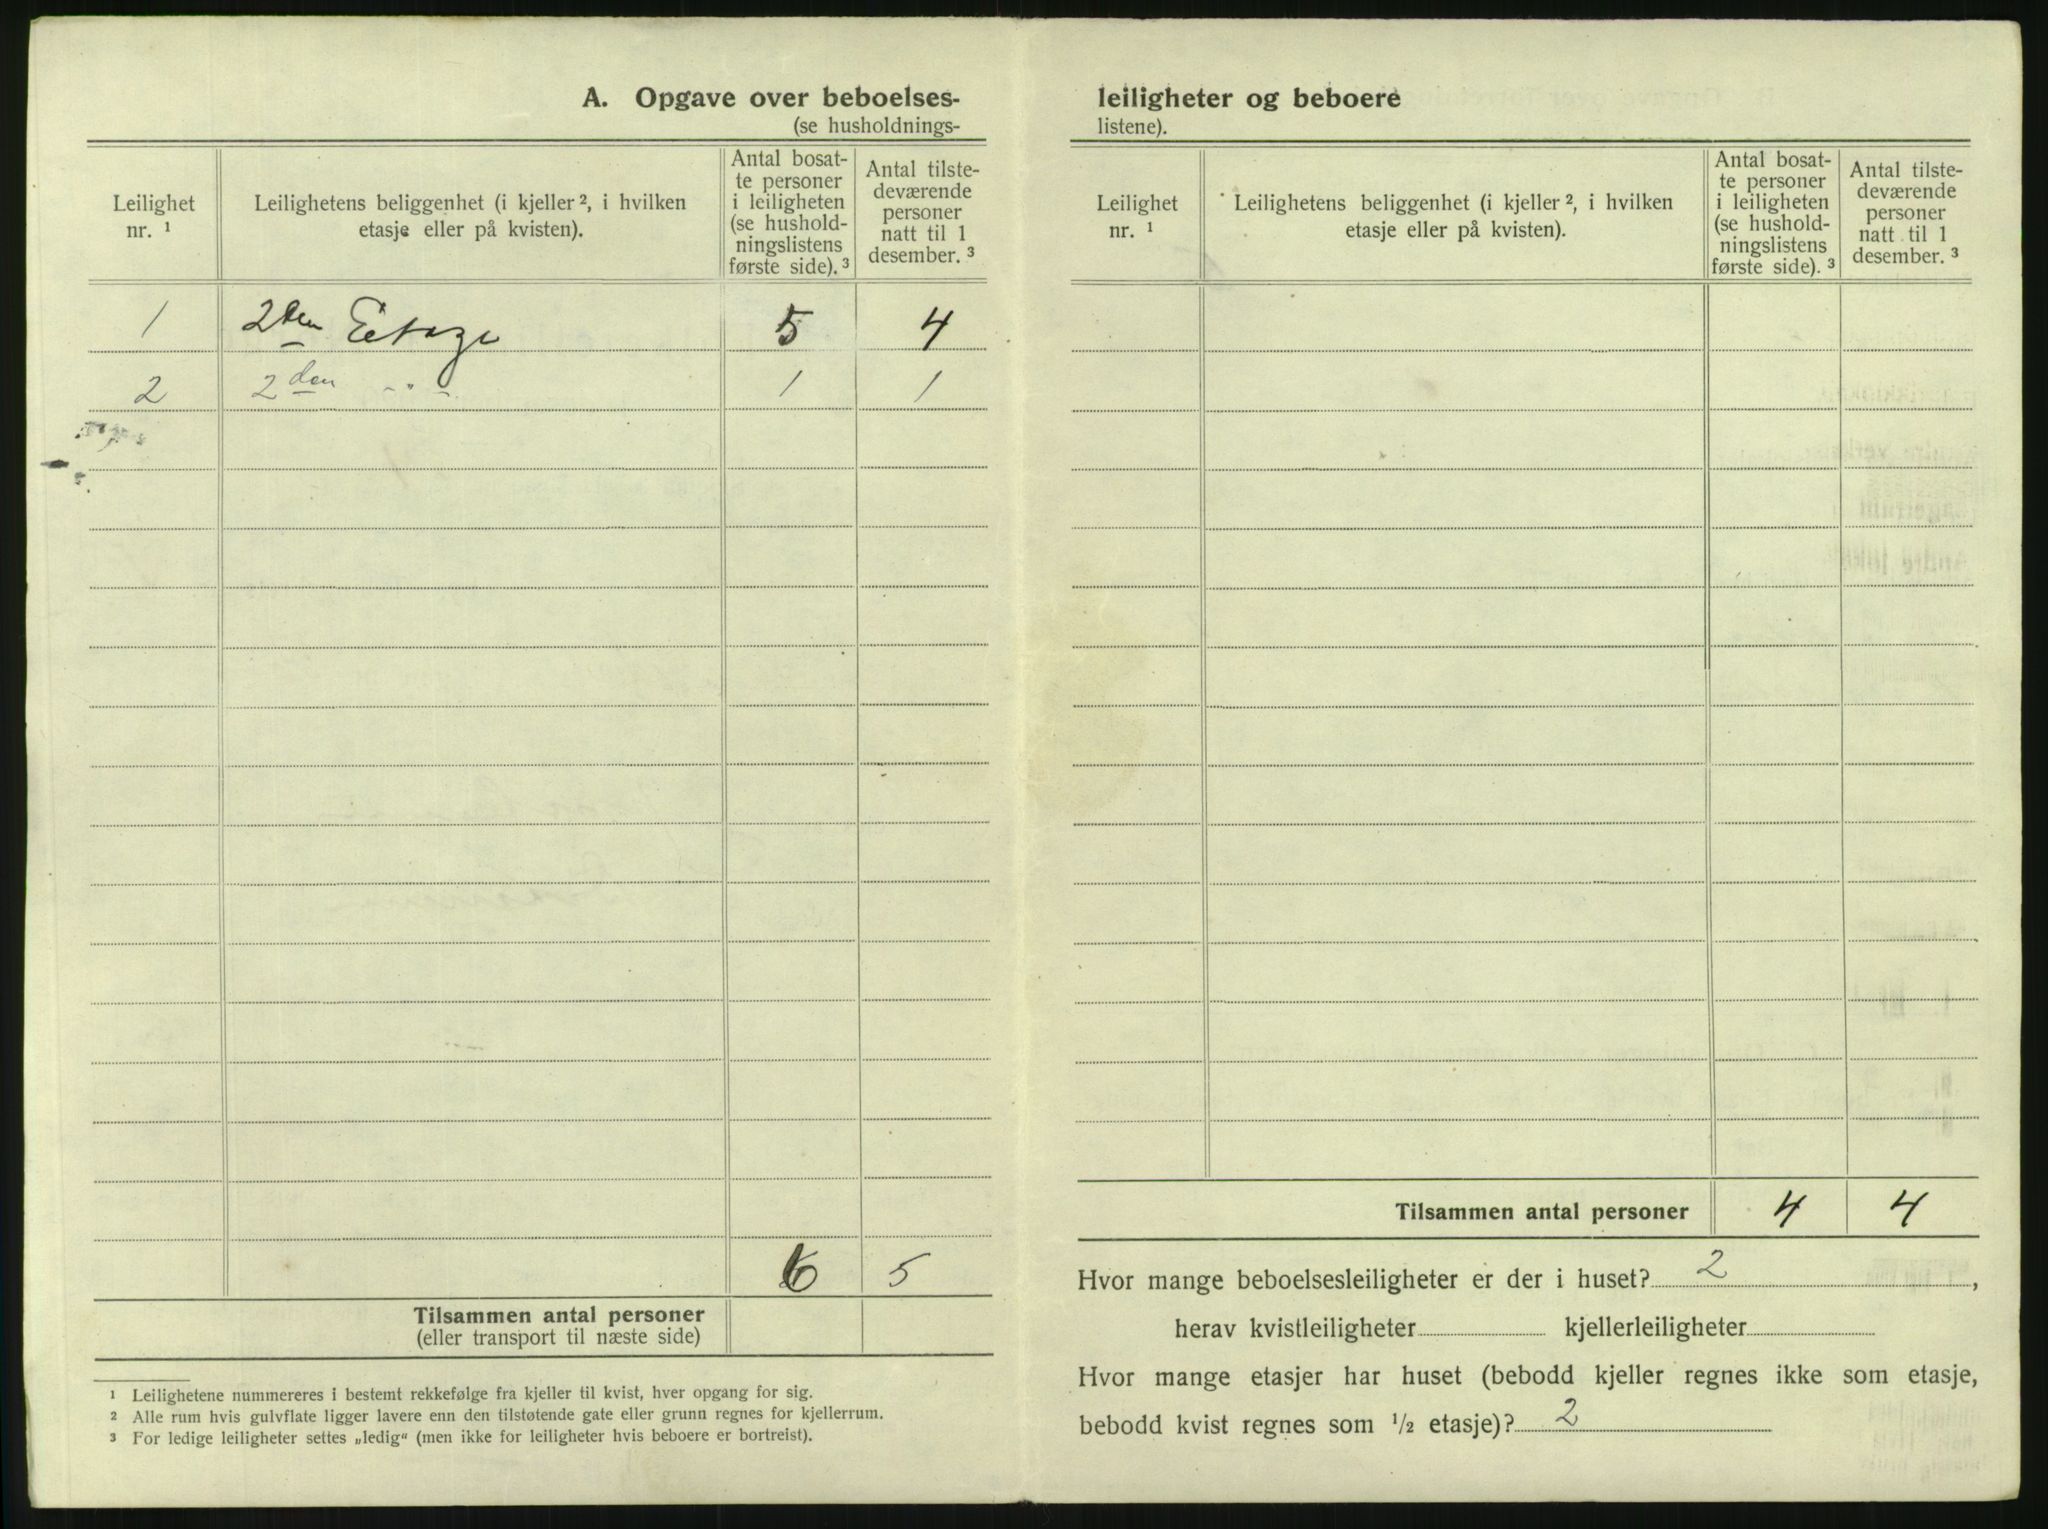 A. Opgave over beboelses-
(se husholdnings-
Leilighet
nr. ¹
Leilighetens beliggenhet (i kjeller ², i hvilken
etasje eller på kvisten).
Antal bosat-
te personer
i leiligheten
(se hushold-
ningslistens
første side). ³
Antal tilste-
deværende
personer
natt til 1
desember. ³
1 2den Eetage 5 4
2 2den -"- 1 1
6 5
Tilsammen antal personer
(eller transport til næste side)
¹ Leilighetene nummereres i bestemt rekkefølge fra kjeller til kvist, hver opgang for sig.
² Alle rum hvis gulvflate ligger lavere enn den tilstøtende gate eller grunn regnes for kjellerrum.
³ For ledige leiligheter settes „ledig“ (men ikke for leiligheter hvis beboere er bortreist).
leiligheter og beboere
listene).
Leilighet
nr. ¹
Leilighetens beliggenhet (i kjeller ², i hvilken
etasje eller på kvisten).
Antal bosat-
te personer
i leiligheten
(se hushold-
ningslistens
første side). ³
Antal tilste-
deværende
personer
natt til 1
desember. ³
Tilsammen antal personer 4 4
Hvor mange beboelsesleiligheter er der i huset? 2 ,
herav kvistleiligheter kjellerleiligheter
Hvor mange etasjer har huset (bebodd kjeller regnes ikke som etasje,
bebodd kvist regnes som ½ etasje)? 2